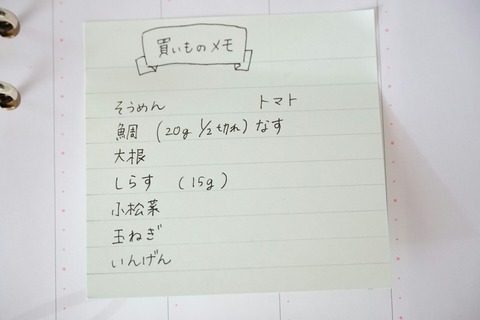 買いものメモ
そうめん
鯛 (20g 1/2切れ)
大根
しらす (15g)
小松菜
玉ねぎ
いんげん
トマト
なす